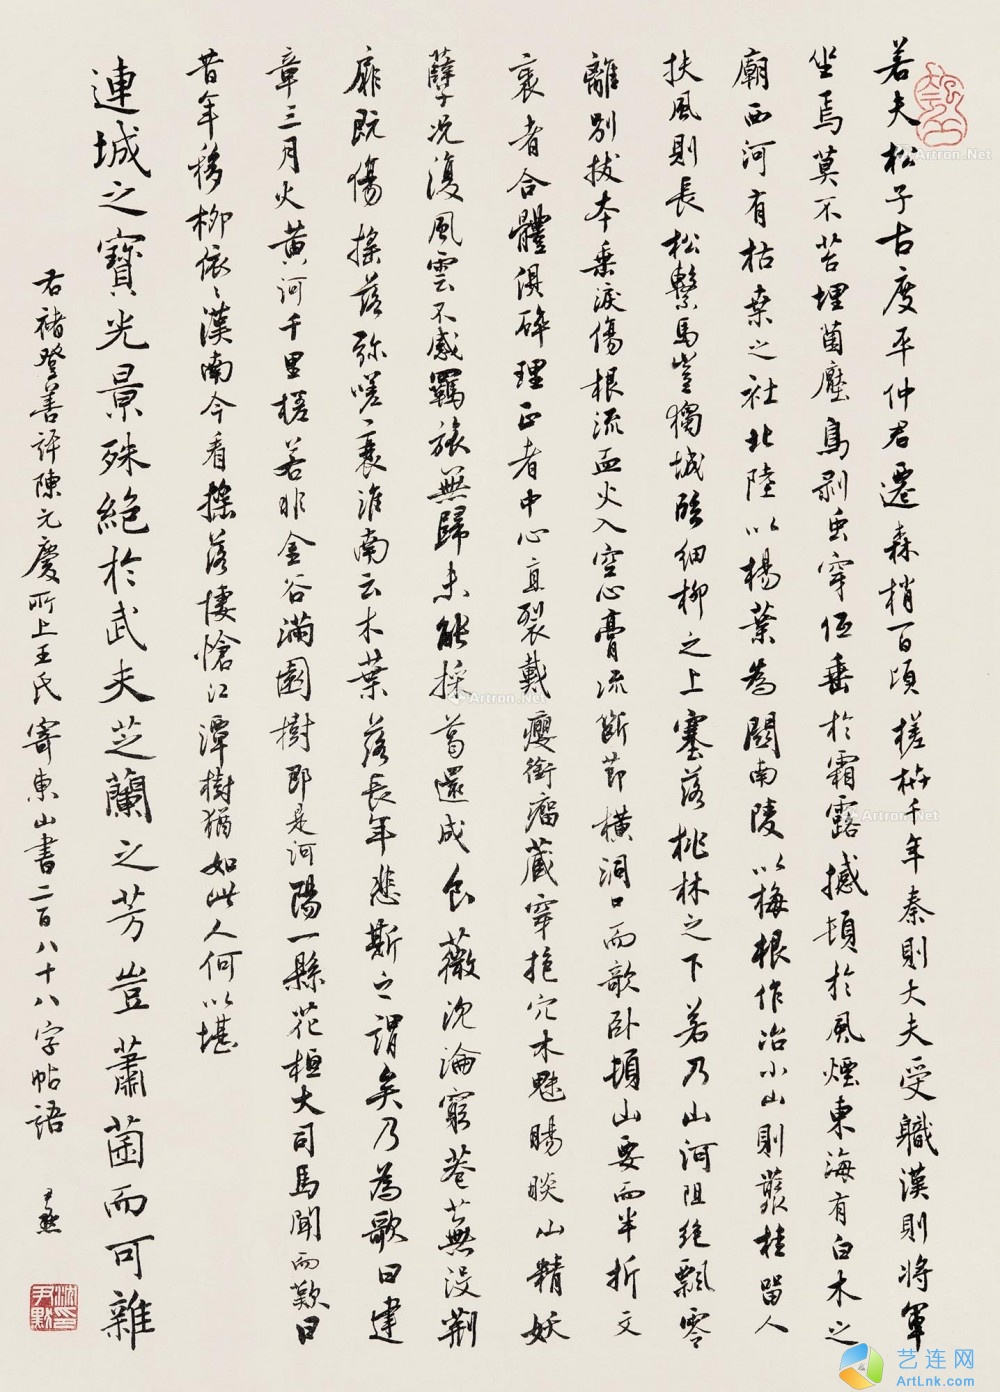 若夫松子古度平仲君遷森梢百頃槎枿千年秦則大夫受職漢則將軍
坐焉莫不苔埋菌壓鳥剥虫穿低垂於霜露撼頓於風煙東海有白木之
廟西河有枯桒之社北陸以楊葉為關南陵以梅根作冶小山則叢桂留人
扶風則長松繫馬豈獨城臨細柳之上塞落桃林之下若乃山河阻絶飄零
離別拔本垂淚傷根流血火入空心膏流斷節橫洞口而敧卧頓山要而半折文
衺者合體俱碎理正者中心直裂戴癭銜瘤藏穿抱穴木魅睗睒山精妖
孽況復風雲不感羈旅無歸未能採葛還成食薇沈淪窮巷蕪没荆
扉既傷搖落弥嗟變衰淮南云木葉落長年悲斯之謂矣乃為歌曰建
章三月火黃河千里槎若非金谷滿園樹即是河陽一縣花桓大司馬聞而歎曰
昔年移柳依依漢南今看搖落悽愴江潭樹猶如此人何以堪
連城之寶光景殊絶於武夫芝蘭之芳豈蕭菌而可雜
右褚登善評陳元慶所上王氏寄東山書二百八十八字帖語 尹默
沈尹默印
Artron.Net
Artron.Net
Artron.Net
艺连网
ArtLnk.com